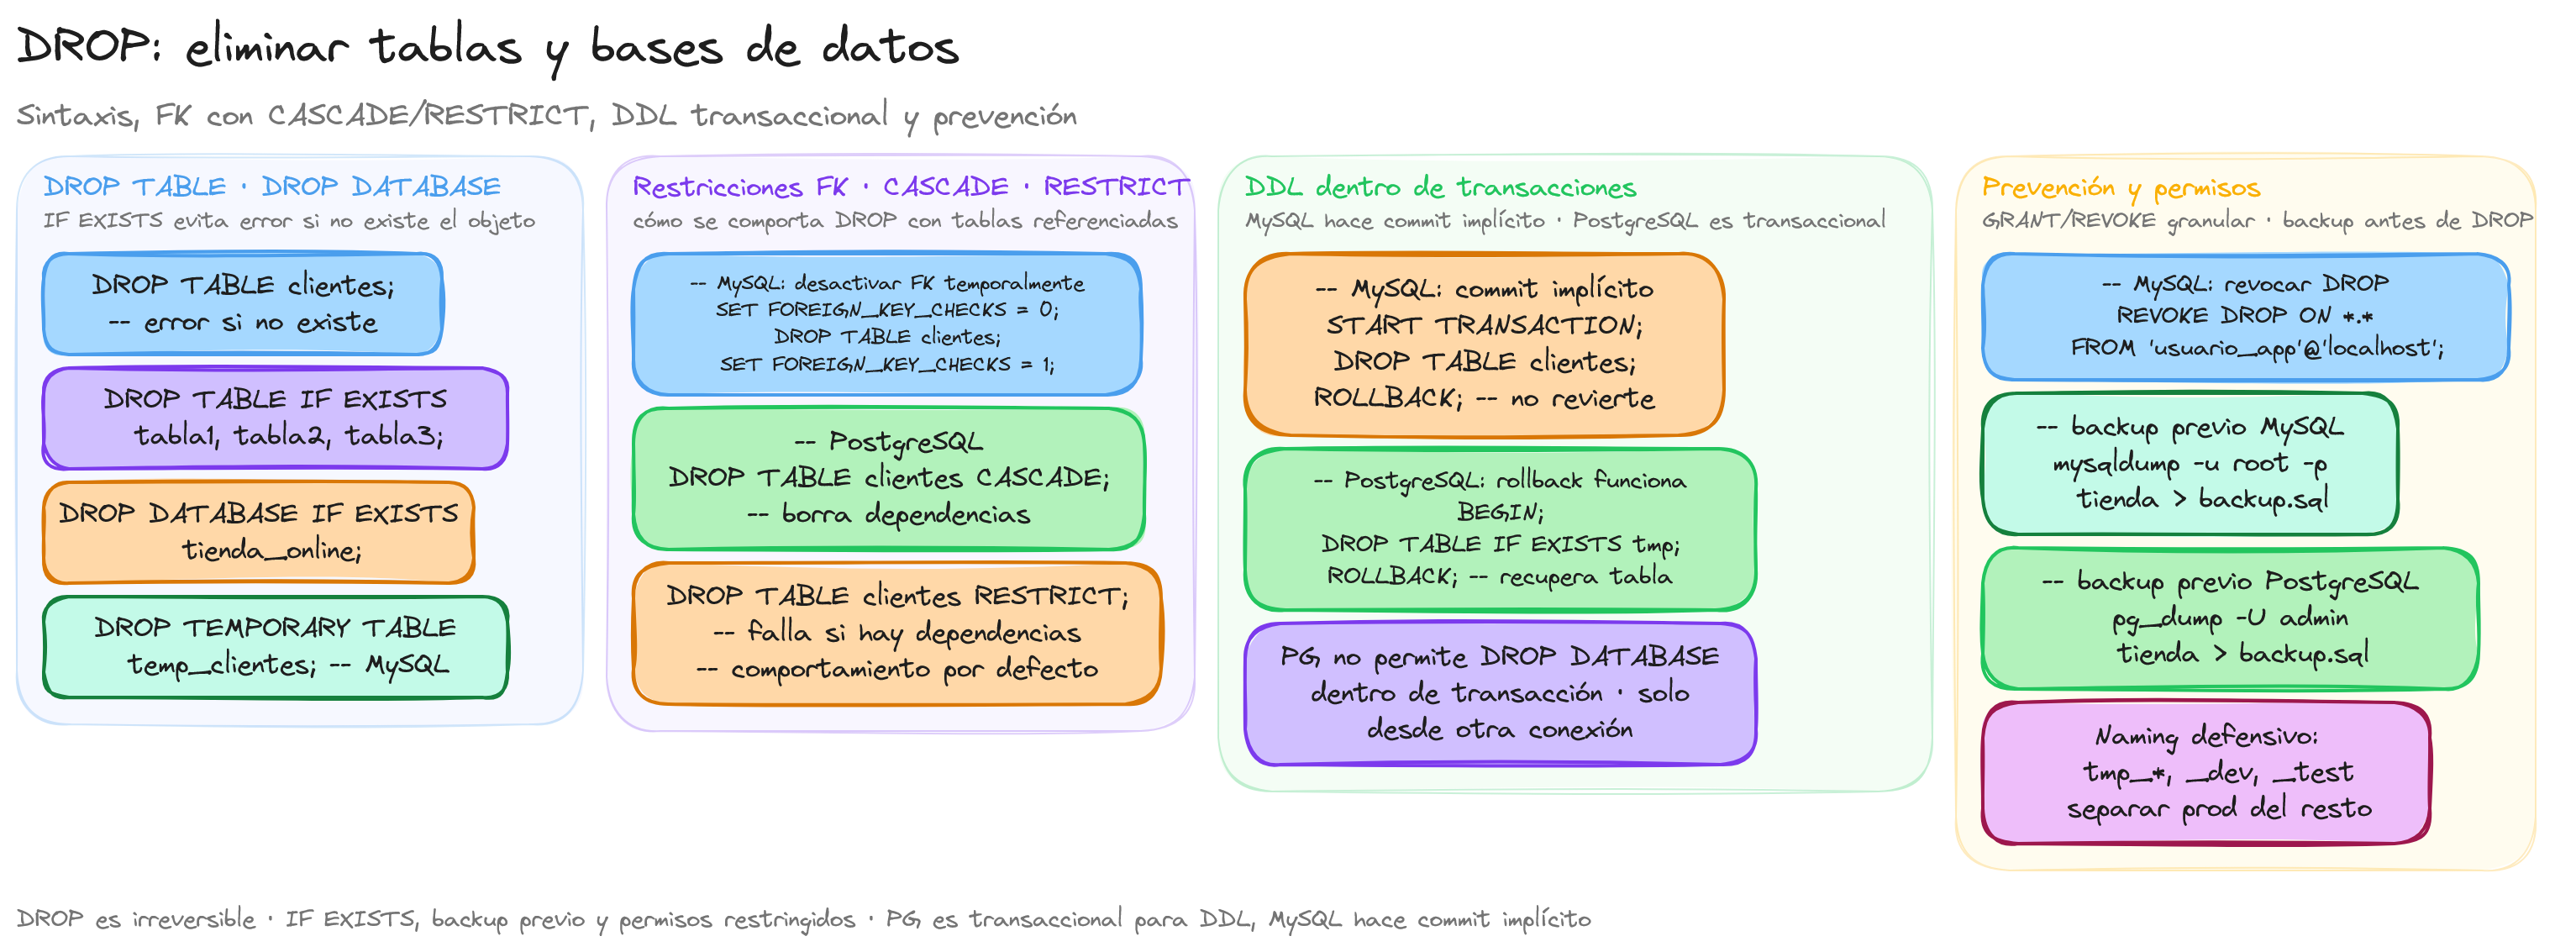 DROP: eliminar tablas y bases de datos
Sintaxis, FK con CASCADE/RESTRICT, DDL transaccional y prevención
DROP TABLE · DROP DATABASE
IF EXISTS evita error si no existe el objeto
DROP TABLE clientes;
-- error si no existe
DROP TABLE IF EXISTS
tabla1, tabla2, tabla3;
DROP DATABASE IF EXISTS
tienda_online;
DROP TEMPORARY TABLE
temp_clientes; -- MySQL
Restricciones FK · CASCADE · RESTRICT
cómo se comporta DROP con tablas referenciadas
-- MySQL: desactivar FK temporalmente
SET FOREIGN_KEY_CHECKS = 0;
DROP TABLE clientes;
SET FOREIGN_KEY_CHECKS = 1;
-- PostgreSQL
DROP TABLE clientes CASCADE;
-- borra dependencias
DROP TABLE clientes RESTRICT;
-- falla si hay dependencias
-- comportamiento por defecto
DDL dentro de transacciones
MySQL hace commit implícito · PostgreSQL es transaccional
-- MySQL: commit implícito
START TRANSACTION;
DROP TABLE clientes;
ROLLBACK; -- no revierte
-- PostgreSQL: rollback funciona
BEGIN;
DROP TABLE IF EXISTS tmp;
ROLLBACK; -- recupera tabla
PG no permite DROP DATABASE
dentro de transacción · solo
desde otra conexión
Prevención y permisos
GRANT/REVOKE granular · backup antes de DROP
-- MySQL: revocar DROP
REVOKE DROP ON *.*
FROM 'usuario_app'@'localhost';
-- backup previo MySQL
mysqldump -u root -p
tienda > backup.sql
-- backup previo PostgreSQL
pg_dump -U admin
tienda > backup.sql
Naming defensivo:
tmp_*, _dev, _test
separar prod del resto
DROP es irreversible · IF EXISTS, backup previo y permisos restringidos · PG es transaccional para DDL, MySQL hace commit implícito